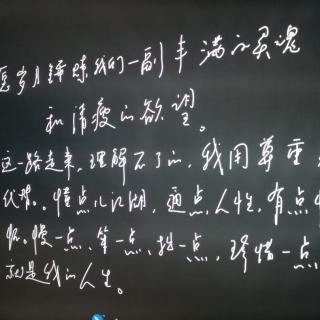 愿岁月锤炼我们一副丰满的灵魂
和清瘦的欲望。
这一路走来,理解不了的,我用尊重
代替。懂点儿江湖,通点人性,有点
慢一点,笨一点,拙一点,珍惜一点
就是我的人生。